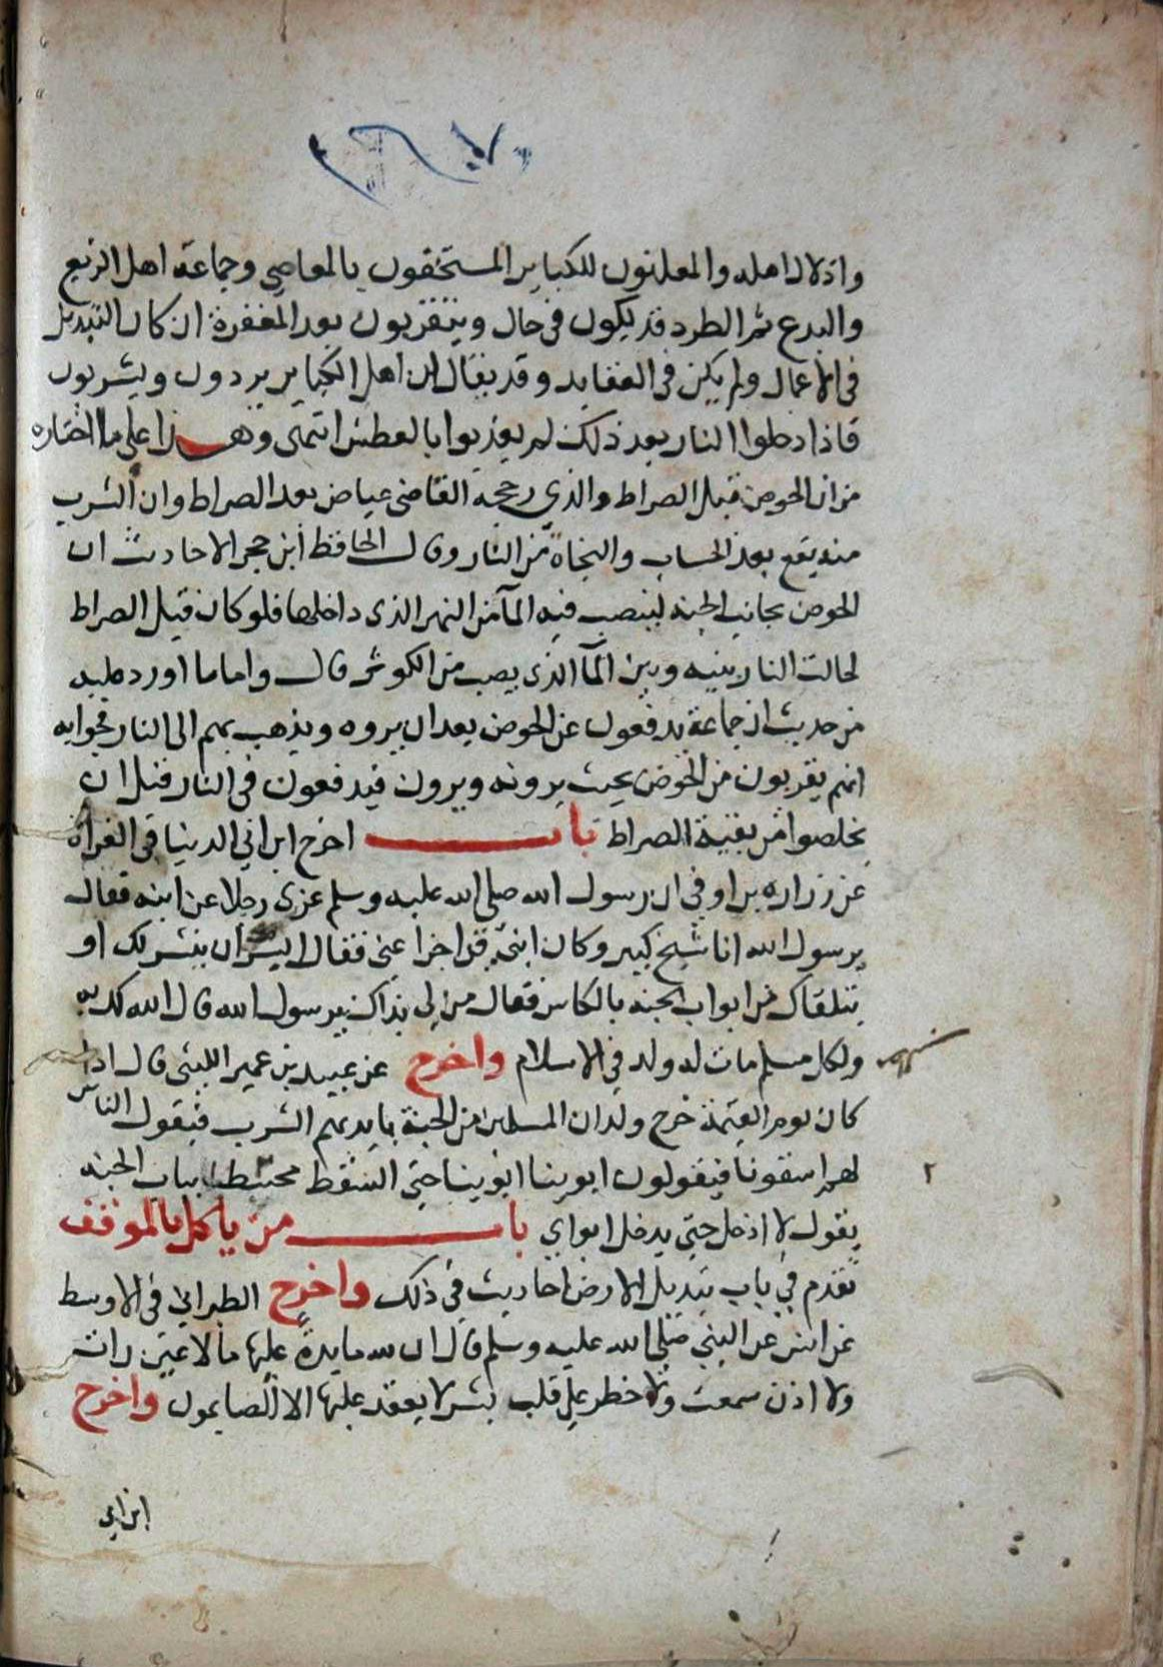 واذلال اهله والمعلنون للكباير المستخفون بالمعاصي وجماعة اهل الزيغ
والبدع ثم الطرد قد يكون في حال ويقربون بعد المغفرة ان كان التبديل
في الاعمال ولم يكن في العقايد وقد يقال ان اهل الكباير يردون ويشربون
فاذا دخلوا النار بعد ذلك لم يعذبوا بالعطش انتهى وهذا على ما اختاره
من ان الحوض قبل الصراط والذي رجحه القاضي عياض بعد الصراط وان الشرب
منه يقع بعد الحساب والنجاة من النار وقال الحافظ ابن حجر الاحاديث ان
الحوض بجانب الجنه لينصب فيه المآ من النهر الذي داخلها فلو كان قبل الصراط
لحالت النار بينه وبين المآ الذي يصب من الكوثر قال واما ما اورد عليه
من حديث ان جماعة يدفعون عن الحوض بعد ان يروه ويذهب بهم الى النار فجوابه
انهم يقربون من الحوض بحيث يرونه ويرون فيدفعون في النار قبل ان
يخلصوا من بقية الصراط باب اخرج ابن ابي الدنيا في العزاة
عن زراره بن اوفى ان رسول الله صلى الله عليه وسلم عزى رجلا عن ابنه فقال
يرسول الله انا شيخ كبير وكان ابني قد اجزا عني فقال ايسر ان ينشر لك او
يتلقاك من ابواب الجنه بالكاس فقال من لي بذاك يرسول الله قال الله لك به
ولكل مسلم مات له ولد في الاسلام واخرج عن عبيد بن عمير الليثي قال اذا
كان يوم القيمة خرج ولدان المسلمين من الجنة بايديهم الشرب فيقول الناس
لهم اسقونا فيقولون ابوينا ابوينا حتى السقط محبنطيا بباب الجنه
يقول لا ادخل حتى يدخل ابواي باب من ياكل بالموقف
تقدم في باب تبديل الارض احاديث في ذلك واخرج الطبراني في الاوسط
عن انس عن النبي صلى الله عليه وسلم قال ان لله مايدة عليها ما لا عين رات
ولا اذن سمعت ولا خطر على قلب بشر لا يقعد عليها الا الصايمون واخرج
ابن ابي
٢